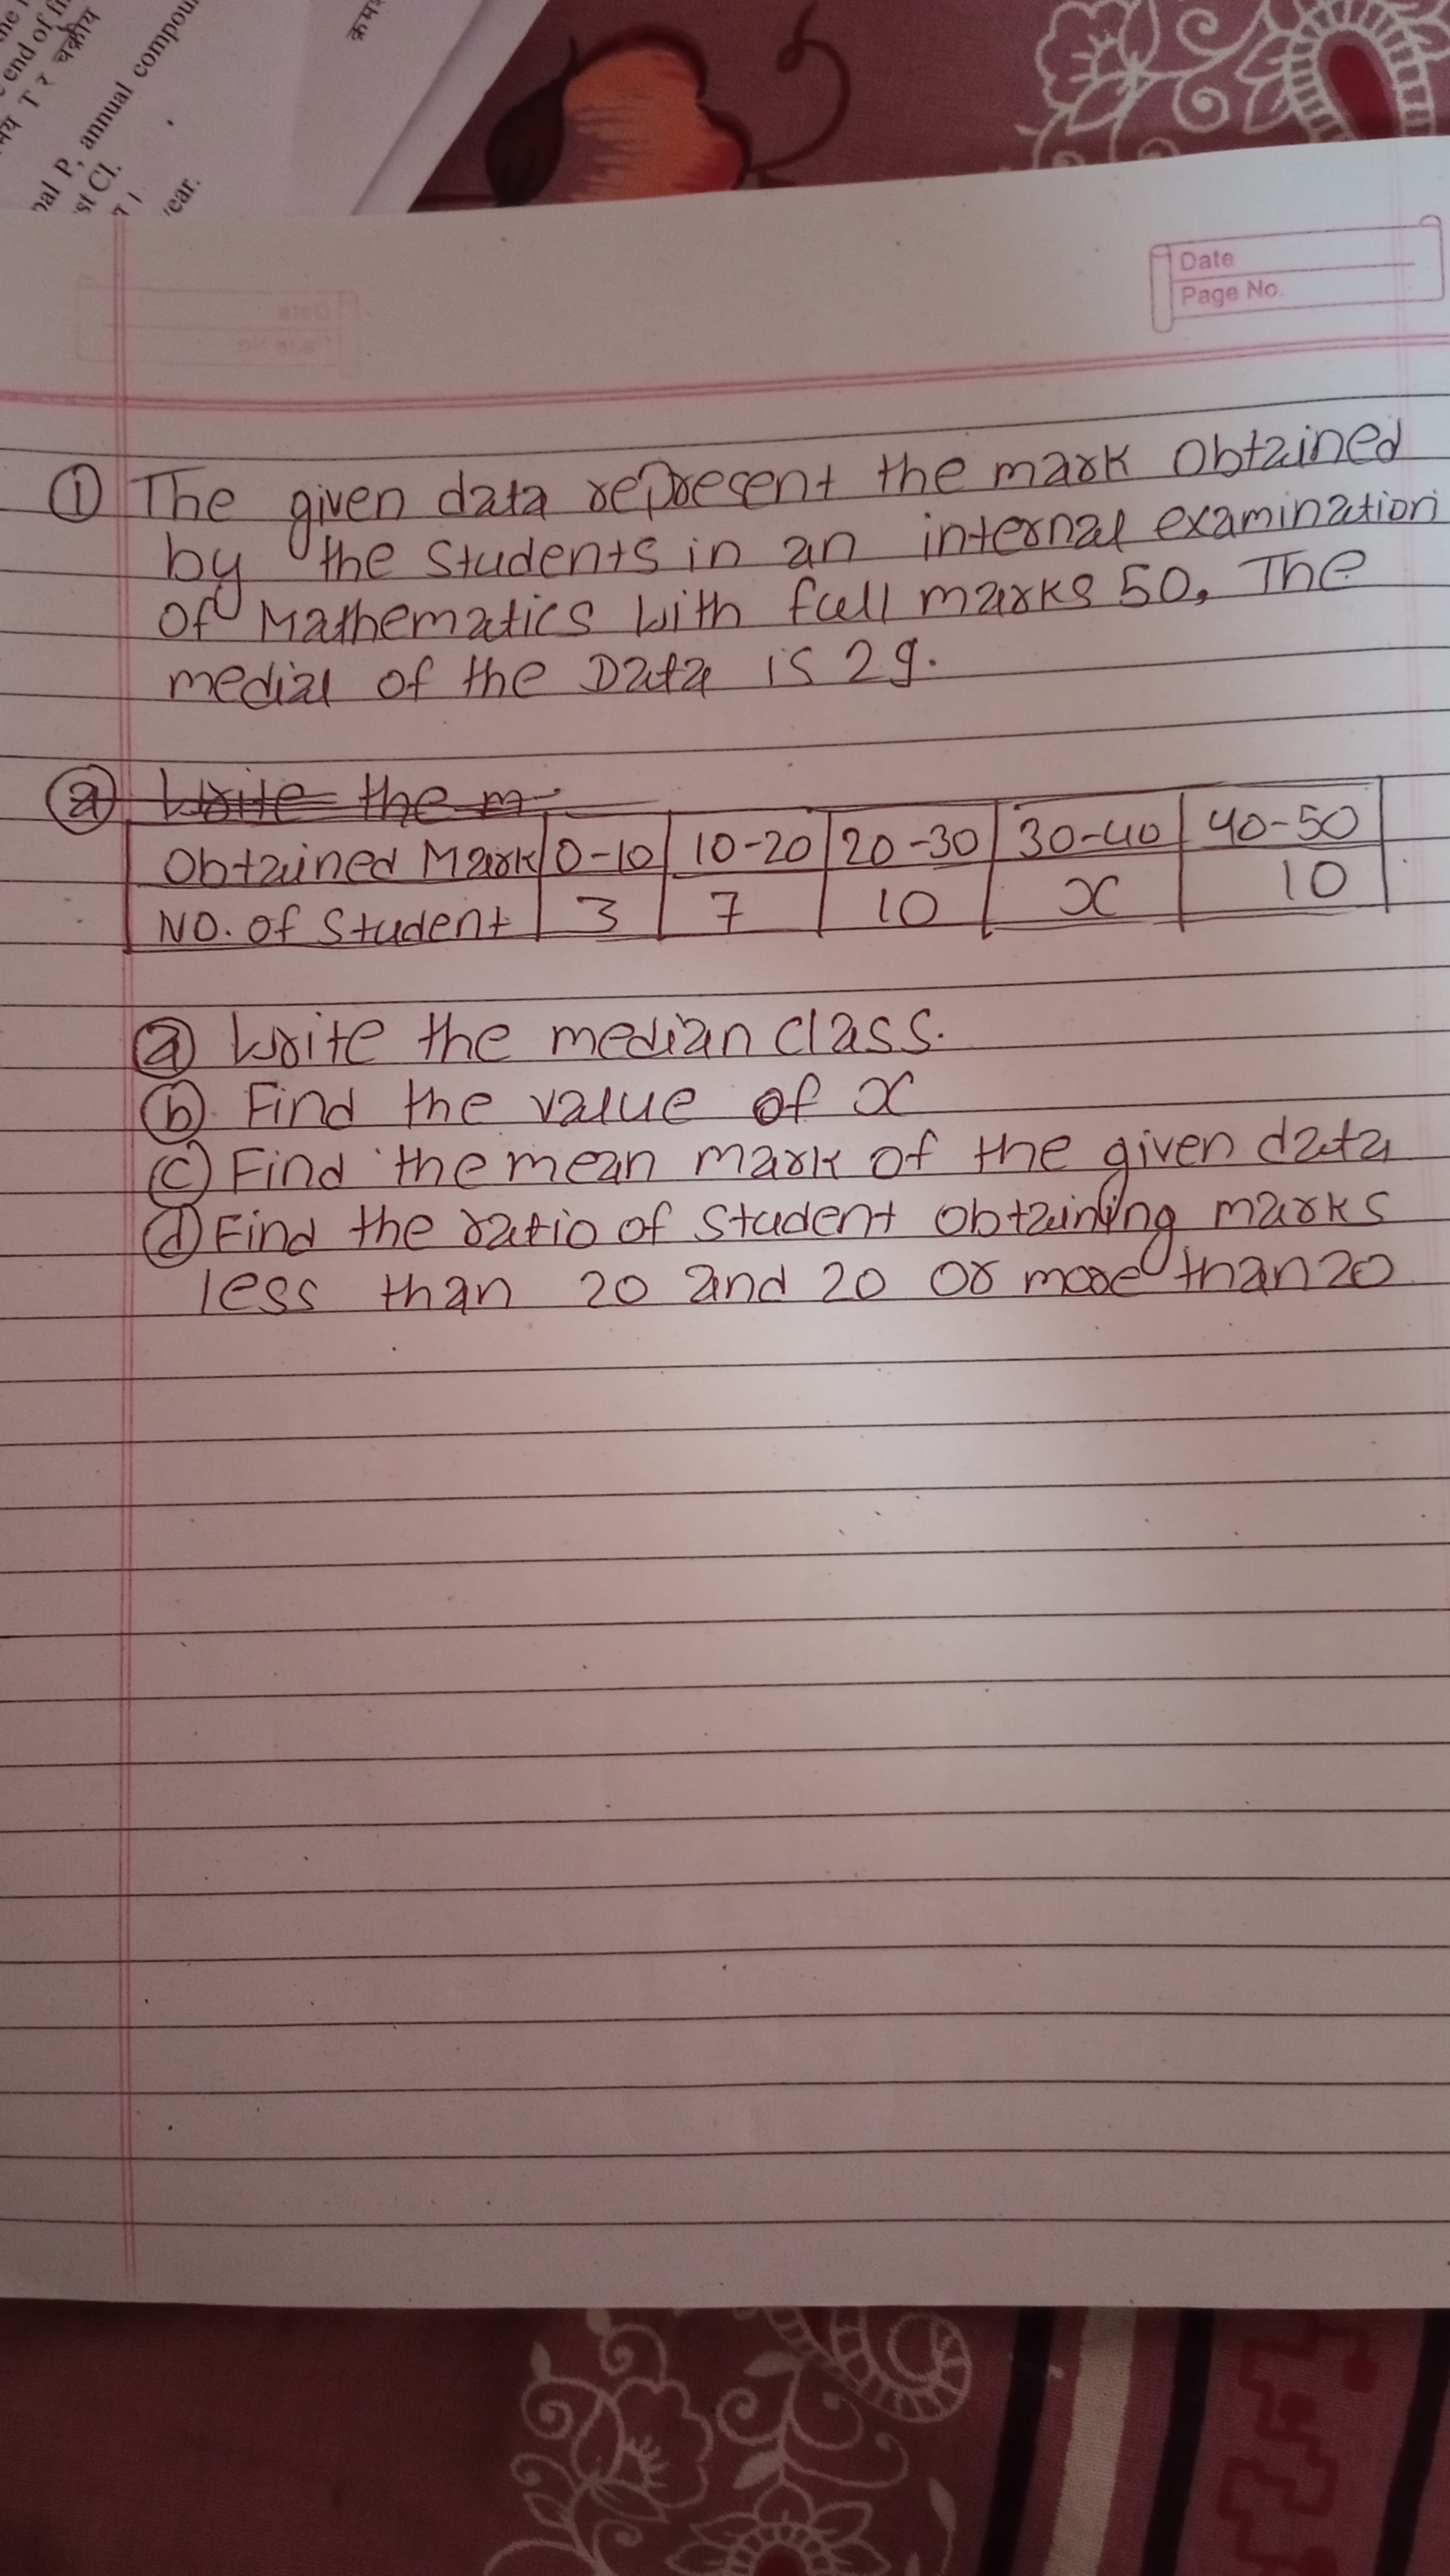 end of fi
चक्रीय
T र
nal P, annual compou
st CI.
ear.
Date
Page No.
① The given data represent the mark obtained
by the students in an internal examination
of Mathematics with full marks 50. The
medial of the Data is 29.
ⓐ Write the m
Obtained Mark 0-10 10-20 20-30 30-40 40-50
NO. of Student 3 7 10 x 10
ⓐ Write the median class.
ⓑ Find the value of x
ⓒ Find the mean mark of the given data
ⓓ Find the ratio of student obtaining marks
less than 20 and 20 or more than 20